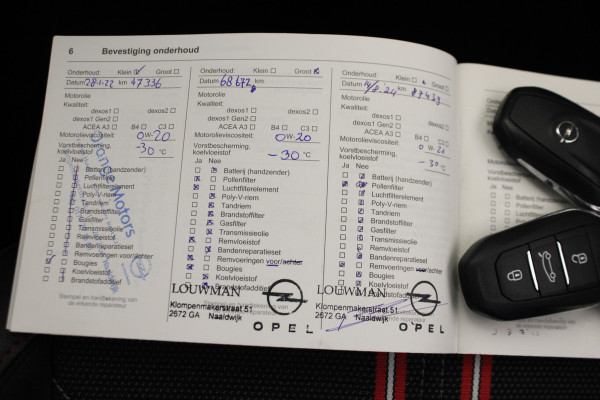 6 Bevestiging onderhoud
Onderhoud: Klein ☑ Groot ☐
Datum 28-1-22 km 47336
Motorolie
Kwaliteit:
dexos1 ☐ dexos2 ☐
dexos1 Gen2 ☐
ACEA A3 ☐ B4 ☐ C3 ☐
Motorolieviscositeit: 0 W- 20
Vorstbescherming,
koelvloeistof -30 °C
Ja Nee
Batterij (handzender)
Pollenfilter
Luchtfilterelement
Poly-V-riem
Tandriem
Brandstoffilter
Gasfilter
Transmissieolie
Remvloeistof
Bandenreparatieset
Remvoeringen voor/achter
Bougies
Koelvloeistof
Brandstofadditief
Stempel en handtekening van
de erkende reparateur
Dance Motors
Onderhoud: Klein ☐ Groot ☒
Datum 68672 km
Motorolie
Kwaliteit:
dexos1 ☐ dexos2 ☐
dexos1 Gen2 ☐
ACEA A3 ☐ B4 ☐ C3 ☐
Motorolieviscositeit: 0 W- 20
Vorstbescherming,
koelvloeistof -30 °C
Ja Nee
Batterij (handzender)
Pollenfilter
Luchtfilterelement
Poly-V-riem
Tandriem
Brandstoffilter
Gasfilter
Transmissieolie
Remvloeistof
Bandenreparatieset
Remvoeringen voor/achter
Bougies
Koelvloeistof
Brandstofadditief
LOUWMAN
Klompenmakerstraat 51
2672 GA Naaldwijk
OPEL
Onderhoud: Klein ☐ Groot ☐
Datum km
Motorolie
Kwaliteit:
dexos1 ☐ dexos2 ☐
dexos1 Gen2 ☐
ACEA A3 ☐ B4 ☐ C3 ☐
Motorolieviscositeit: 0 W- 20
Vorstbescherming,
koelvloeistof -30 °C
Ja Nee
Batterij (handzender)
Pollenfilter
Luchtfilterelement
Poly-V-riem
Tandriem
Brandstoffilter
Gasfilter
Transmissieolie
Remvloeistof
Bandenreparatieset
Remvoeringen voor/achter
Bougies
Koelvloeistof
Brandstofadditief
LOUWMAN
Klompenmakerstraat 51
2672 GA Naaldwijk
OPEL